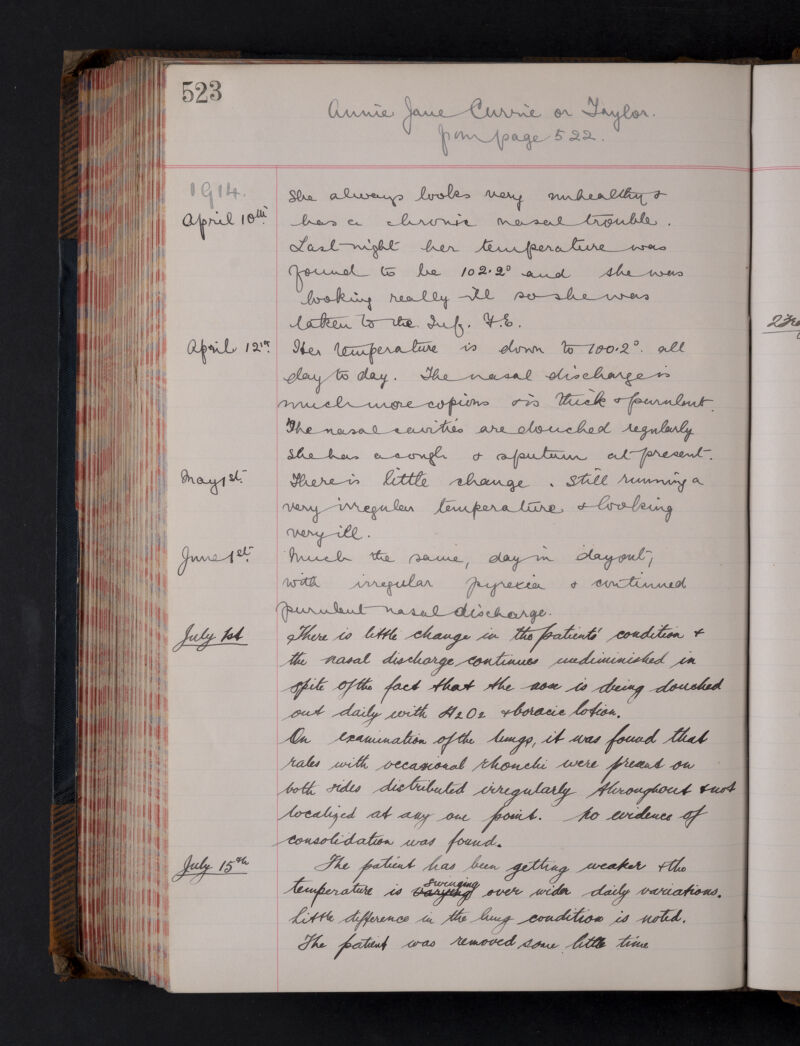 523
Annie Jane Currie or Taylor.
from page 522.
1914.
April 10th. She always looks very unhealthy &
has a chronic nasal trouble.
Last night her temperature was
found to be 102.2° and she was
looking really ill so she was
taken to the Inf. F.S.
April 12th. Her temperature is down to 100.2°. all
day to day. The nasal discharge is
much more copious & is thick & purulent.
The nasal cavities are douched regularly
She has a cough & sputum at present.
May 1st. There is little change. Still running a
very irregular temperature & looking
very ill.
June 1st. Much the same, day in day out,
with irregular pyrexia & continued
purulent nasal discharge.
July 1st There is little change in the patients' condition &
the nasal discharge continues undiminished in
spite of the fact that the nose is being douched
out daily with H2O2 & boracic lotion.
On examination of the lungs, it was found that
rales with occasional rhonchi were present on
both sides distributed irregularly throughout & not
localized at any one point. No evidence of
consolidation was found.
July 15th The patient has been getting weaker & the
temperature is varying swinging over wider daily variations.
Little difference in the lung condition is noted.
The patient was removed some little time